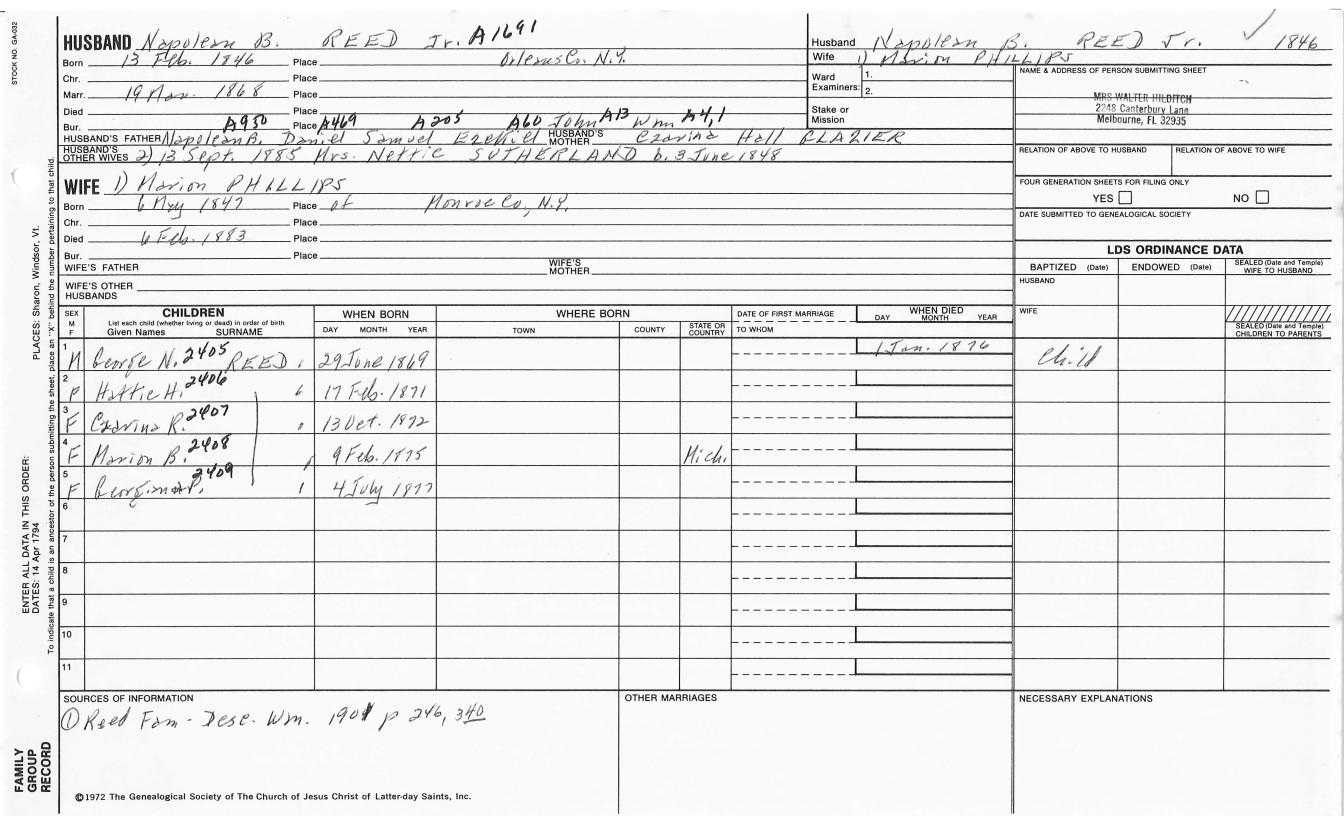 STOCK NO. GA-032
PLACES: Sharon, Windsor, Vt.
ENTER ALL DATA IN THIS ORDER:
DATES: 14 Apr 1794
To indicate that a child is an ancestor of the person submitting the sheet, place an "X" behind the number pertaining to that child.
FAMILY GROUP RECORD
HUSBAND Napolean B. REED Jr. A1691
Born 13 Feb. 1846 Place Orleans Co. N.Y.
Chr. Place
Marr. 19 Mar. 1868 Place
Died Place
Bur. A950 Place A469 A205 A60 John A13 Wm A4,1
HUSBAND'S FATHER Napolean B. Daniel Samuel Ezekiel HUSBAND'S MOTHER Czarina Hall GLAZIER
HUSBAND'S OTHER WIVES 2) 13 Sept. 1885 Mrs. Nettie SUTHERLAND b. 3 June 1848
WIFE 1) Marion PHILLIPS
Born 6 May 1847 Place of Monroe Co, N.Y.
Chr. Place
Died 6 Feb. 1883 Place
Bur. Place
WIFE'S FATHER WIFE'S MOTHER
WIFE'S OTHER HUSBANDS
Husband Napolean B. REED Jr. ✓ 1846
Wife 1) Marion PHILLIPS
Ward Examiners: 1.
2.
Stake or Mission
NAME & ADDRESS OF PERSON SUBMITTING SHEET
MRS WALTER HILDITCH
2248 Canterbury Lane
Melbourne, FL 32935
RELATION OF ABOVE TO HUSBAND RELATION OF ABOVE TO WIFE
FOUR GENERATION SHEETS FOR FILING ONLY
YES NO
DATE SUBMITTED TO GENEALOGICAL SOCIETY
LDS ORDINANCE DATA
BAPTIZED (Date) ENDOWED (Date) SEALED (Date and Temple) WIFE TO HUSBAND
HUSBAND
WIFE
SEALED (Date and Temple) CHILDREN TO PARENTS
SEX M F CHILDREN List each child (whether living or dead) in order of birth Given Names SURNAME WHEN BORN DAY MONTH YEAR WHERE BORN TOWN COUNTY STATE OR COUNTRY DATE OF FIRST MARRIAGE TO WHOM WHEN DIED DAY MONTH YEAR
1 M George N. 2405 REED 29 June 1869 1 Jan. 1876 Child
2 F Hattie H. 2406 17 Feb. 1871
3 F Czarina R. 2407 13 Oct. 1872
4 F Marion B. 2408 9 Feb. 1875 Mich.
5 F 2409 4 July 1877
6
7
8
9
10
11
SOURCES OF INFORMATION
① Reed Fam - Desc. Wm. 1901 p 246, 340
OTHER MARRIAGES
NECESSARY EXPLANATIONS
©1972 The Genealogical Society of The Church of Jesus Christ of Latter-day Saints, Inc.